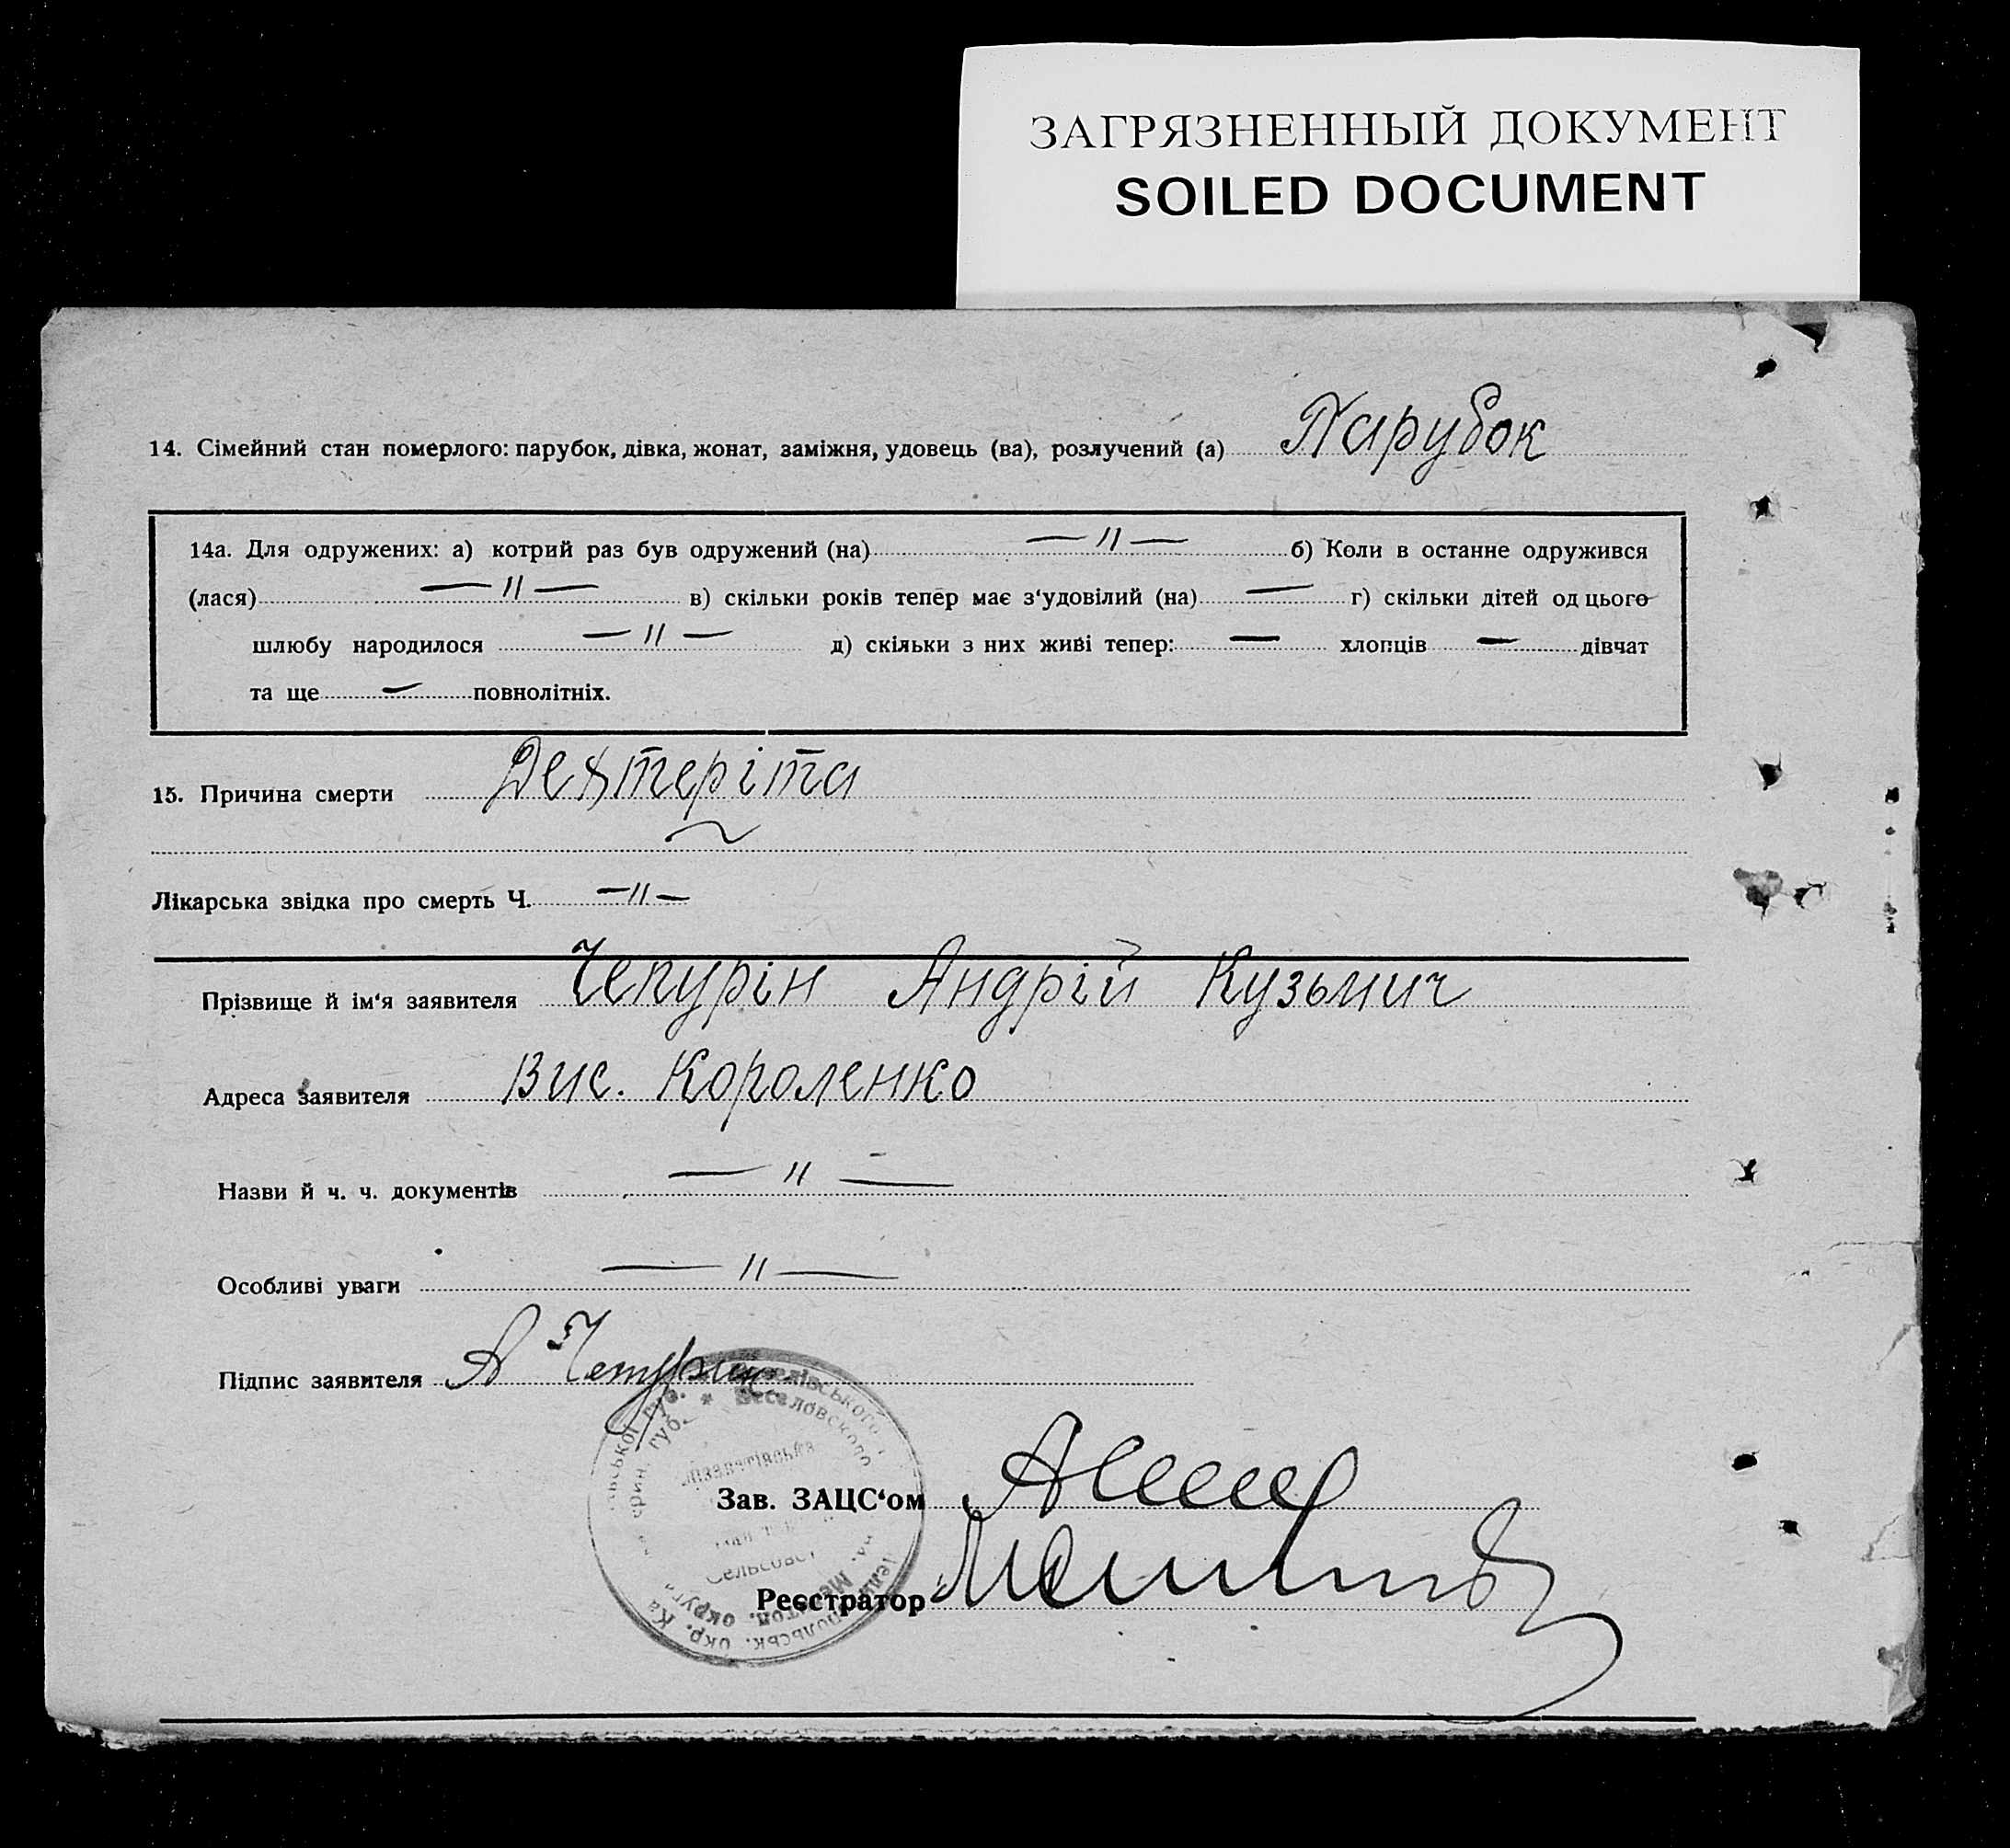 ЗАГРЯЗНЕННЫЙ ДОКУМЕНТ
SOILED DOCUMENT
14. Сімейний стан померлого: парубок, дівка, жонат, заміжня, удовець (ва), розлучений (а) Парубок
14а. Для одружених: а) котрий раз був одружений (на) — " — б) Коли в останне одружився
(лася) — " — в) скільки років тепер має з'удовілий (на) — г) скільки дітей од цього
шлюбу народилося — " — д) скільки з них живі тепер: — хлопців — дівчат
та ще — повнолітніх.
15. Причина смерти Дехтеріта
Лікарська звідка про смерть Ч. — " —
Прізвище й ім'я заявителя Чепурін Андрій Кузьмич
Адреса заявителя Вис. Короленко
Назви й ч. ч. документів — " —
Особливі уваги — " —
Підпис заявителя А Чепурин
Зав. ЗАЦС'ом
Реєстратор
Веселовского
Сельсовет